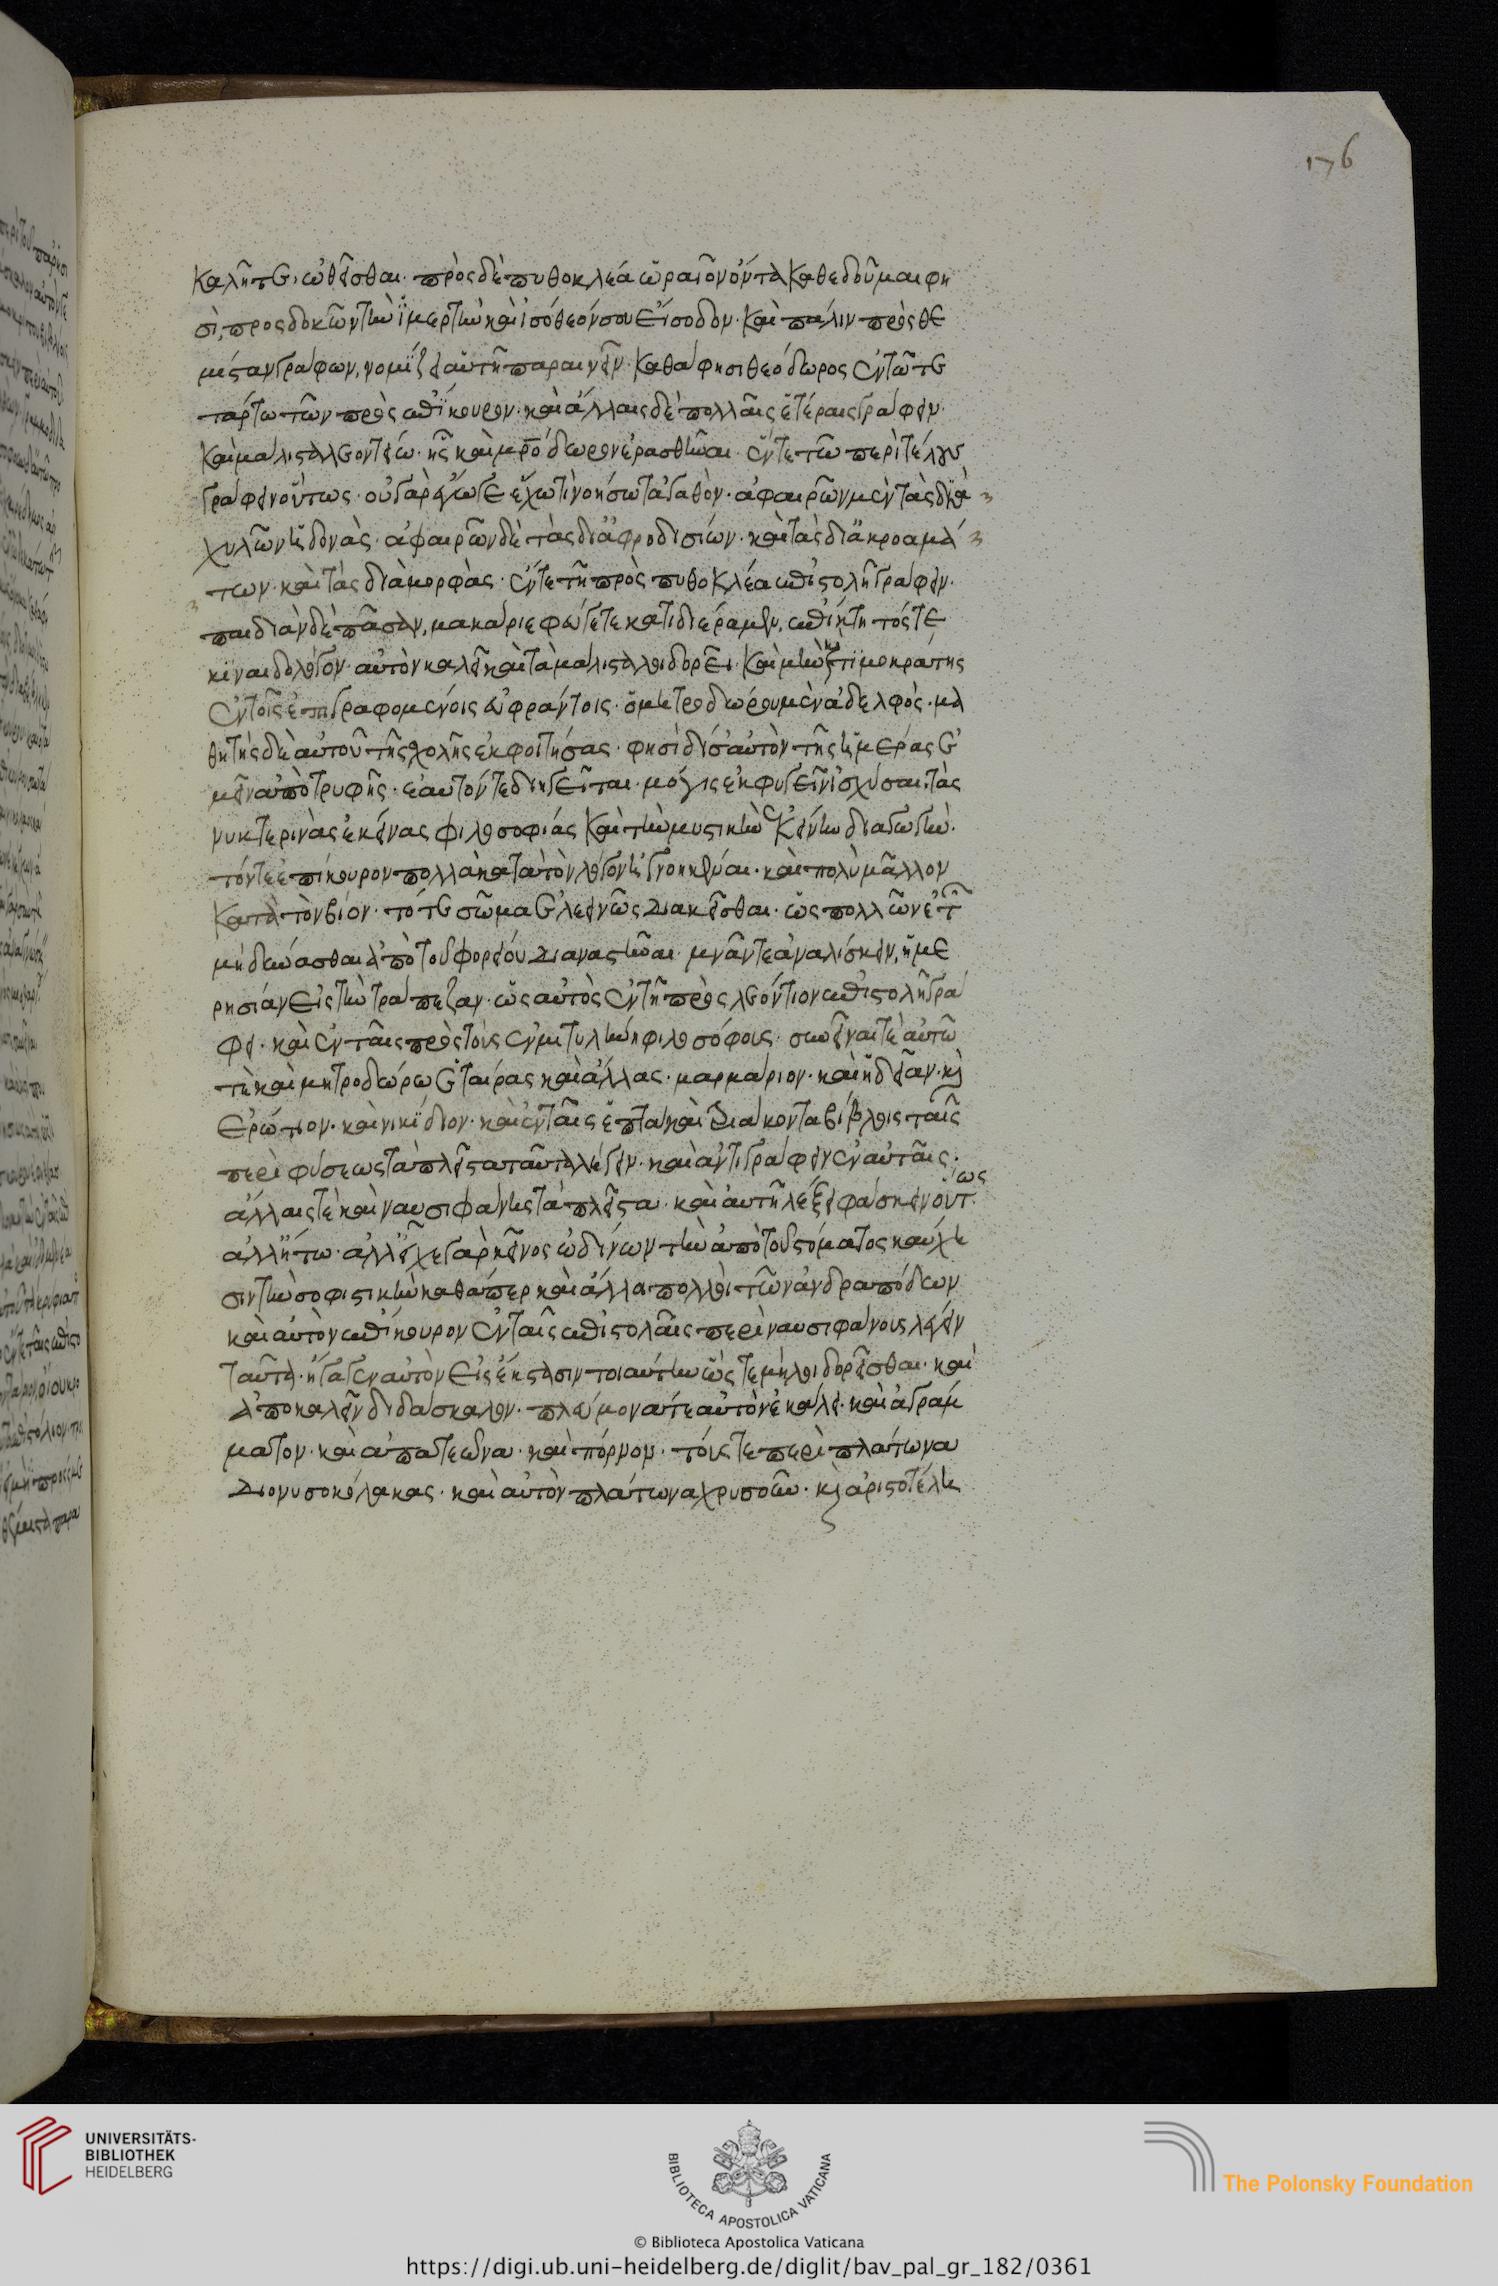 176
καλῆτε, ὠθεῖσθαι· πρὸς δὲ πυθοκλέα ὡραῖον ὄντα καθεδοῦμαι φη
σὶ, προσδοκῶν τὴν ἱμερτὴν καὶ ἰσόθεόν σου εἴσοδον· καὶ πάλιν πρὸς θε
μίσταν γράφων, νομίζει αὐτῆ παραινεῖν· καθά φησι θεόδωρος ἐν τῶ τε
τάρτω τῶν πρὸς ἐπίκουρον· καὶ ἄλλαις δὲ πολλαῖς ἑτέραις γράφειν·
καὶ μάλιστα λεοντίω· ἧς καὶ μητρόδωρον ἐρασθῆναι· ἔν τε τῶ περὶ τέλους
γράφειν οὕτως· οὐ γὰρ ἔγωγε ἔχω τί νοήσω τἀγαθὸν· ἀφαιρῶν μὲν τὰς διὰ
χυλῶν ἡδονὰς· ἀφαιρῶν δὲ τὰς δι ἀφροδισίων· καὶ τὰς δι ἀκροαμά
των· καὶ τὰς διὰ μορφὰς· ἔν τε τῆ πρὸς πυθοκλέα ἐπιστολῆ γράφειν·
παιδιὰν δὲ πᾶσαν, μακάριε φύγετε κατιδιέραμεν, ἐπίκτητός τε
κιναιδολόγον αὐτὸν καλεῖ καὶ τὰ μάλιστα λοιδορεῖ· καὶ μὴν καὶ τιμοκράτης
ἐν τοῖς ἐπιγραφομένοις εὐφράντοις· ὁ μητροδώρου μὲν ἀδελφὸς· μα
θητὴς δὲ αὐτοῦ τῆς σχολῆς ἐκφοιτήσας· φησὶ δὶς αὐτὸν τῆς ἡμέρας ἐ
μεῖν ἀπὸ τρυφῆς· ἑαυτόν τε διηγεῖται· μόγις ἐκφυγεῖν ἰσχῦσαι τὰς
νυκτερινὰς ἐκείνας φιλοσοφίας καὶ τὴν μυστικὴν ἐκείνην διαγωγὴν·
τόν τε ἐπίκουρον πολλὰ κατὰ τὸν λόγον ἠγνοηκέναι· καὶ πολὺ μᾶλλον
κατὰ τὸν βίον· τό τε σῶμα ἐλεεινῶς διακεῖσθαι· ὡς πολλῶν ἐτ
μὴ δύνασθαι ἀπὸ τοῦ φορείου διαναστῆναι· μνᾶν τε ἀναλίσκειν, ἡμε
ρησίαν εἰς τὴν τράπεζαν· ὡς αὐτὸς ἐν τῆ πρὸς λεόντιον ἐπιστολῆ γρά
φει· καὶ ἐν ταῖς πρὸς τοὺς ἐν μιτυλήνη φιλοσόφους· συνεῖναί τε αὐτῶ
τὲ καὶ μητροδώρω ἑταίρας καὶ ἄλλας· μαρμάριον· καὶ ἡδεῖαν· κὶ
ἐρώτιον· καὶ νικίδιον· καὶ ἐν ταῖς ἑπτὰ καὶ τριάκοντα βίβλοις ταῖς
περὶ φύσεως τὰ πλεῖστα ταῦτα λέγειν· καὶ ἀντιγράφειν ἐν αὐταῖς·
ἄλλαις τὲ καὶ ναυσιφάνης τὰ πλεῖστα· καὶ αὐτῆ λέξει φάσκειν οὕτως·
ἀλλ ἤτω· ἀλλ εἶχε γὰρ κεῖνος ὠδίνων τὴν ἀπὸ τοῦ στόματος καύχη
σιν τὴν σοφιστικὴν καθάπερ καὶ ἄλλα πολλοὶ τῶν ἀνδραπόδων
καὶ αὐτὸν ἐπίκουρον ἐν ταῖς ἐπιστολαῖς περὶ ναυσιφάνους λέγειν
ταῦτα· ἤγαγεν αὐτὸν εἰς ἔκστασιν τοιαύτην ὥστε μὴ λοιδορεῖσθαι· καὶ
ἀποκαλεῖν διδάσκαλον· πλεύμονά τε αὐτὸν ἐκάλει· καὶ ἀγράμ
ματον· καὶ ἀπατεῶνα· καὶ πόρνον· τούς τε περὶ πλάτωνα
διονυσοκόλακας· καὶ αὐτὸν πλάτωνα χρυσοῦν· κὶ ἀριστοτέλη
UNIVERSITÄTS-
BIBLIOTHEK
HEIDELBERG
BIBLIOTECA APOSTOLICA VATICANA
The Polonsky Foundation
© Biblioteca Apostolica Vaticana
https://digi.ub.uni-heidelberg.de/diglit/bav_pal_gr_182/0361